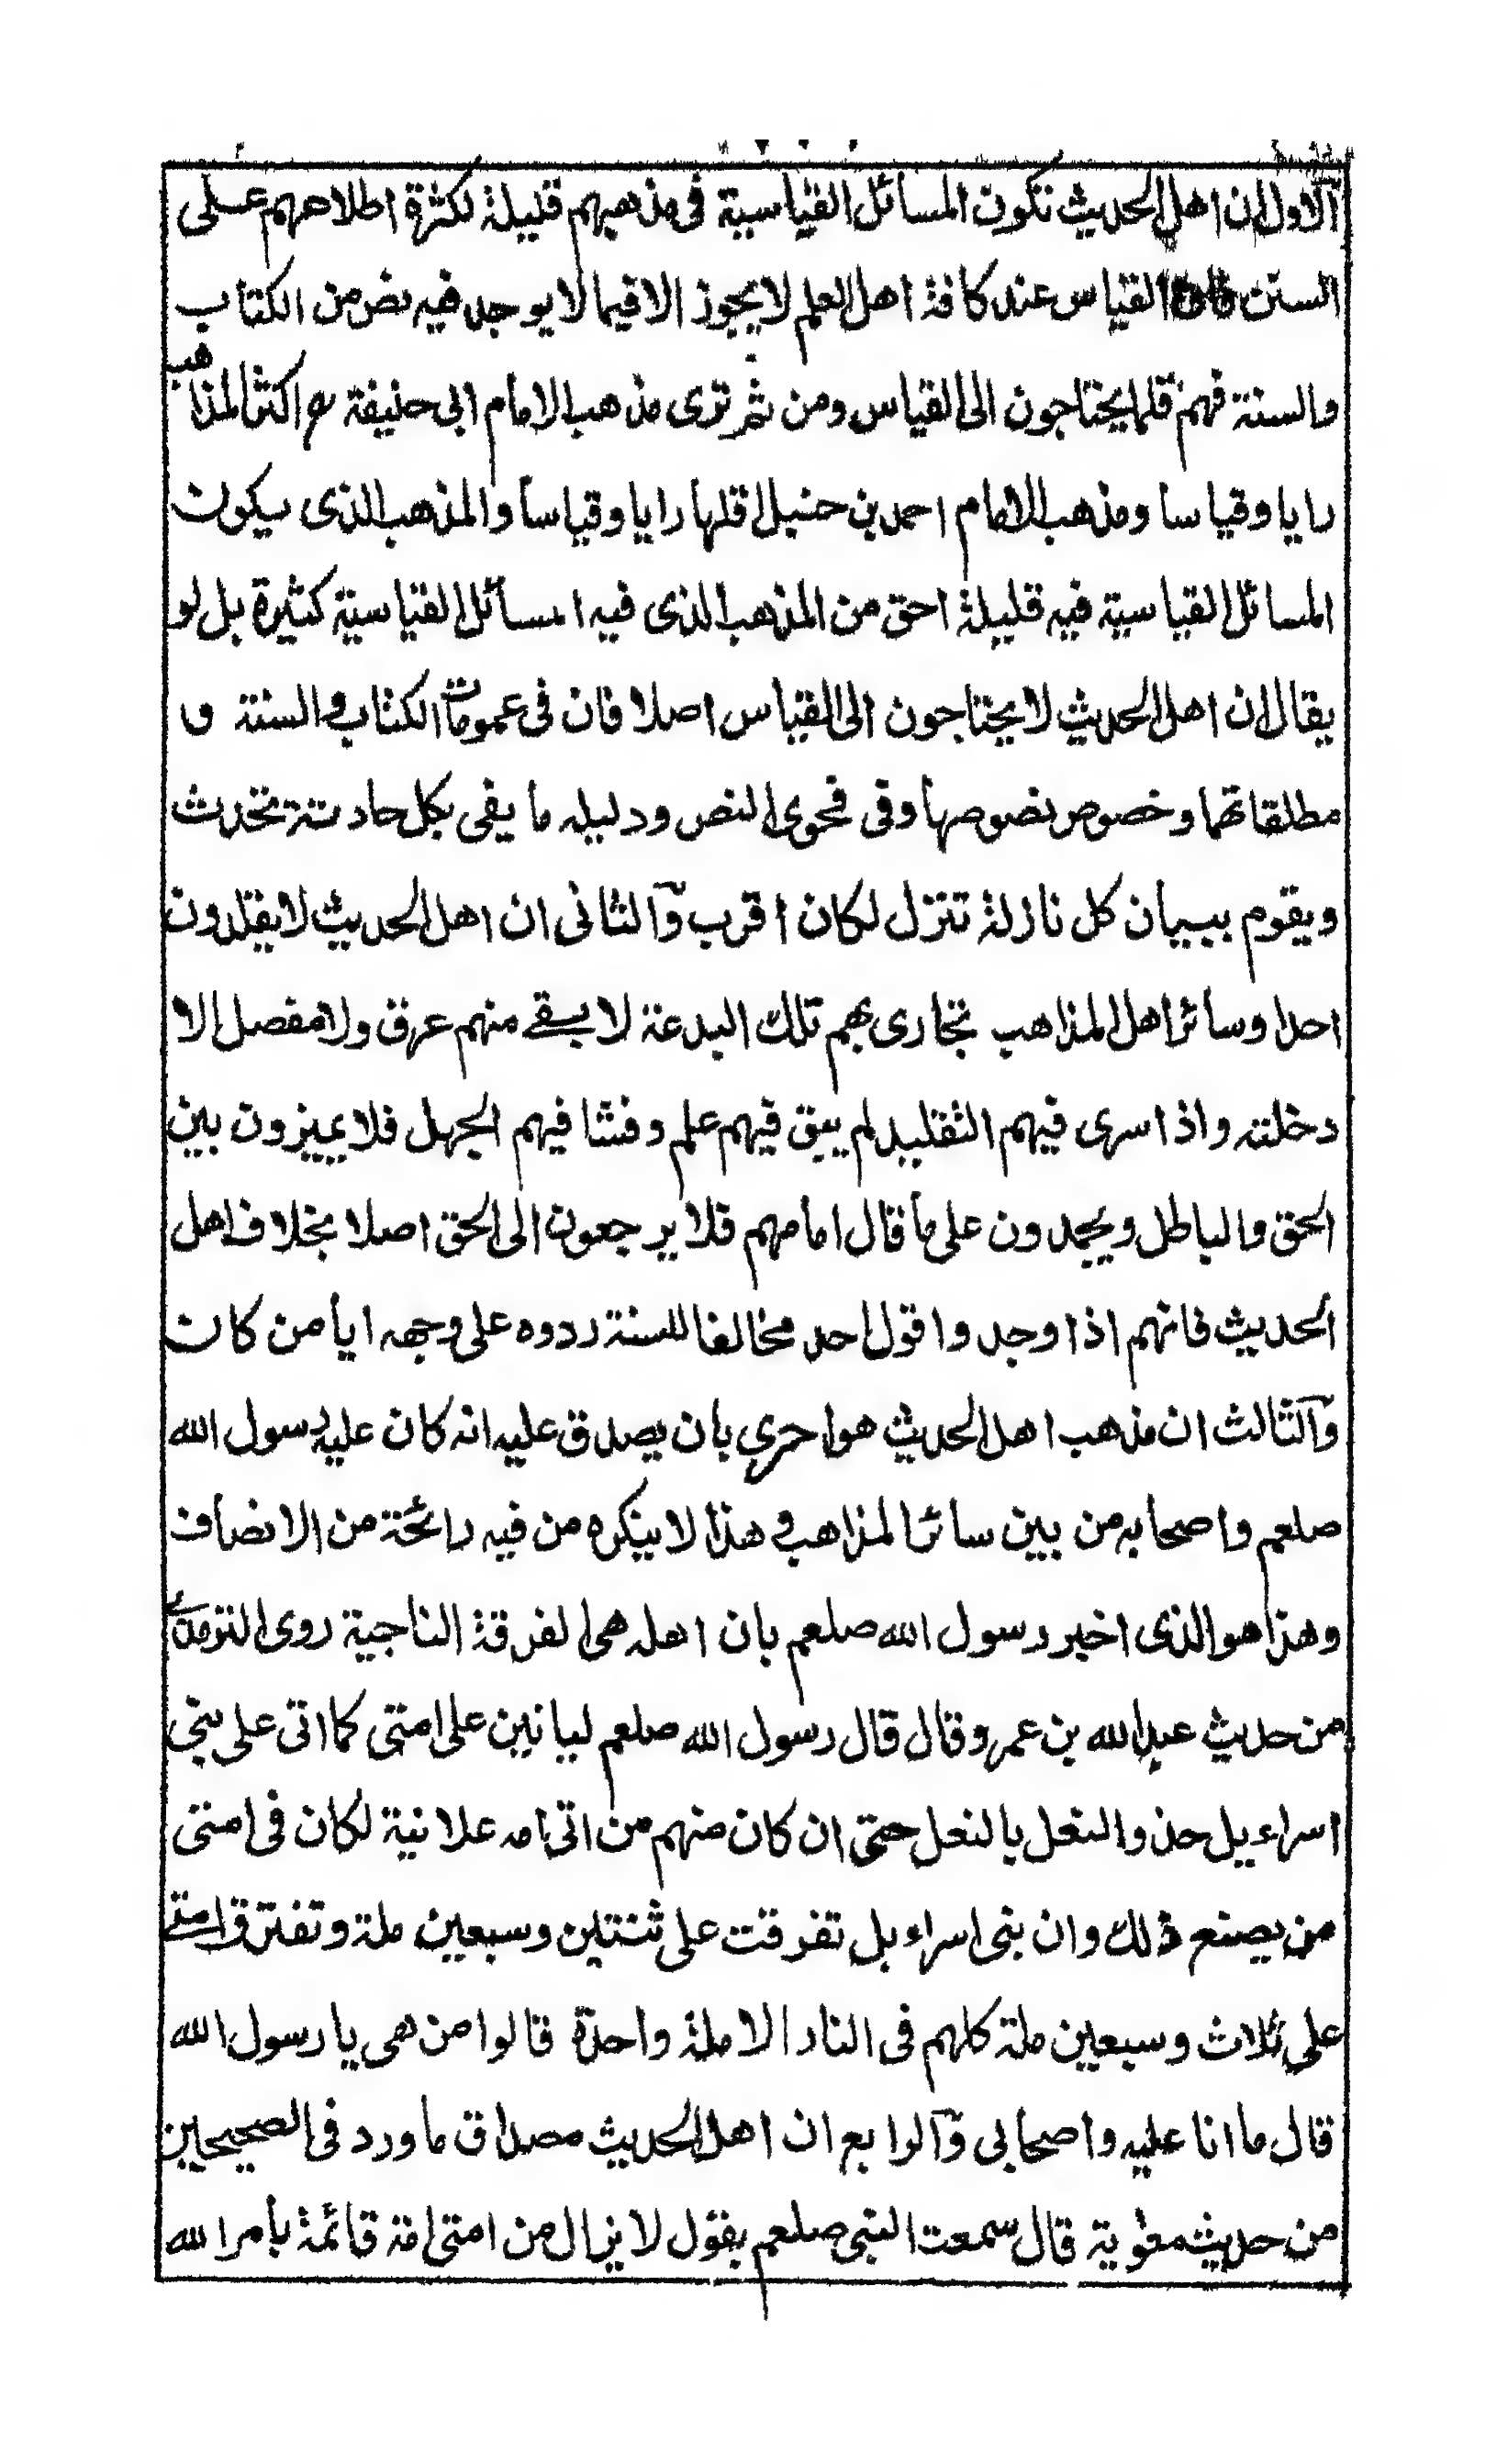 الاول ان اهل الحديث تكون المسائل القياسية فى مذهبهم قليلة لكثرة اطلاعهم على
السنن فان القياس عند كافة اهل العلم لا يجوز الا فيما لا يوجد فيه نص من الكتاب
والسنة فهم قلما يحتاجون الى القياس ومن ثم ترى مذهب الامام ابى حنيفة رح اكثر المذاهب
رايا وقياسا ومذهب الامام احمد بن حنبل اقلها رايا وقياسا والمذهب الذى يكون
المسائل القياسية فيه قليلة احق من المذهب الذى فيه المسائل القياسية كثيرة بل لو
يقال ان اهل الحديث لا يحتاجون الى القياس اصلا فان فى عمومات الكتاب والسنة و
مطلقاتهما وخصوص نصوصها وفى فحوى النص ودليله ما يفى بكل حادثة تحدث
ويقوم ببيان كل نازلة تنزل لكان اقرب وآلثانى ان اهل الحديث لا يقلدون
احدا وسائر اهل المذاهب تجارى بهم تلك البدعة لا يبقے منهم عرق ولا مفصل الا
دخلته واذا سرى فيهم التقليد لم يبق فيهم علم وفشا فيهم الجهل فلا يميزون بين
الحق والباطل ويجمدون على ما قال امامهم فلا يرجعون الى الحق اصلا بخلاف اهل
الحديث فانهم اذا وجدوا قول احد مخالفا للسنة ردوه على وجهه ايا من كان
وآلثالث ان مذهب اهل الحديث هو احرى بان يصدق عليه انه كان عليه رسول الله
صلعم واصحابه من بين سائر المذاهب و هذا لا ينكره من فيه رائحة من الانصاف
وهذا هو الذى اخبر رسول الله صلعم بان اهله هى الفرقة الناجية روى الترمذى
من حديث عبد الله بن عمرو قال قال رسول الله صلعم لياتين على امتى كما اتى على بنى
اسراءيل حذو النعل بالنعل حتى ان كان منهم من اتى امه علانية لكان فى امتى
من يصنع ذلك وان بنى اسراءيل تفرقت على ثنتين وسبعين ملة وتفترق امتے
على ثلاث وسبعين ملة كلهم فى النار الا ملة واحدة قالوا من هى يا رسول الله
قال ما انا عليه واصحابى وآلرابع ان اهل الحديث مصداق ما ورد فى الصحيحين
من حديث معٰوية قال سمعت النبى صلعم يقول لا يزال من امتى امة قائمة بأمر الله